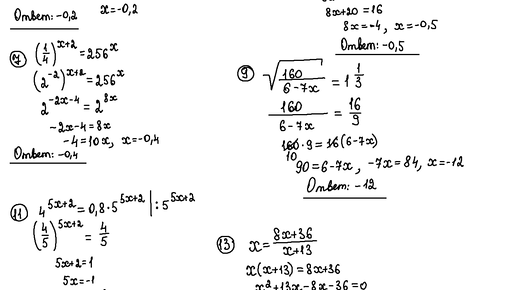 Ответ: -0,2
x=-0,2
7 (1/4)^(x+2) = 256^x
(2^(-2))^(x+2) = 256^x
2^(-2x-4) = 2^(8x)
-2x-4 = 8x
-4=10x, x=-0,4
Ответ: -0,4
11 4^(5x+2) = 0,8·5^(5x+2) | : 5^(5x+2)
(4/5)^(5x+2) = 4/5
5x+2=1
5x=-1
8x+20=16
8x=-4, x=-0,5
Ответ: -0,5
9 √(160/(6-7x)) = 1 1/3
160/(6-7x) = 16/9
160·9 = 16(6-7x)
10
90=6-7x, -7x=84, x=-12
Ответ: -12
13 x = (8x+36)/(x+13)
x(x+13) = 8x+36
x²+13x-8x-36=0